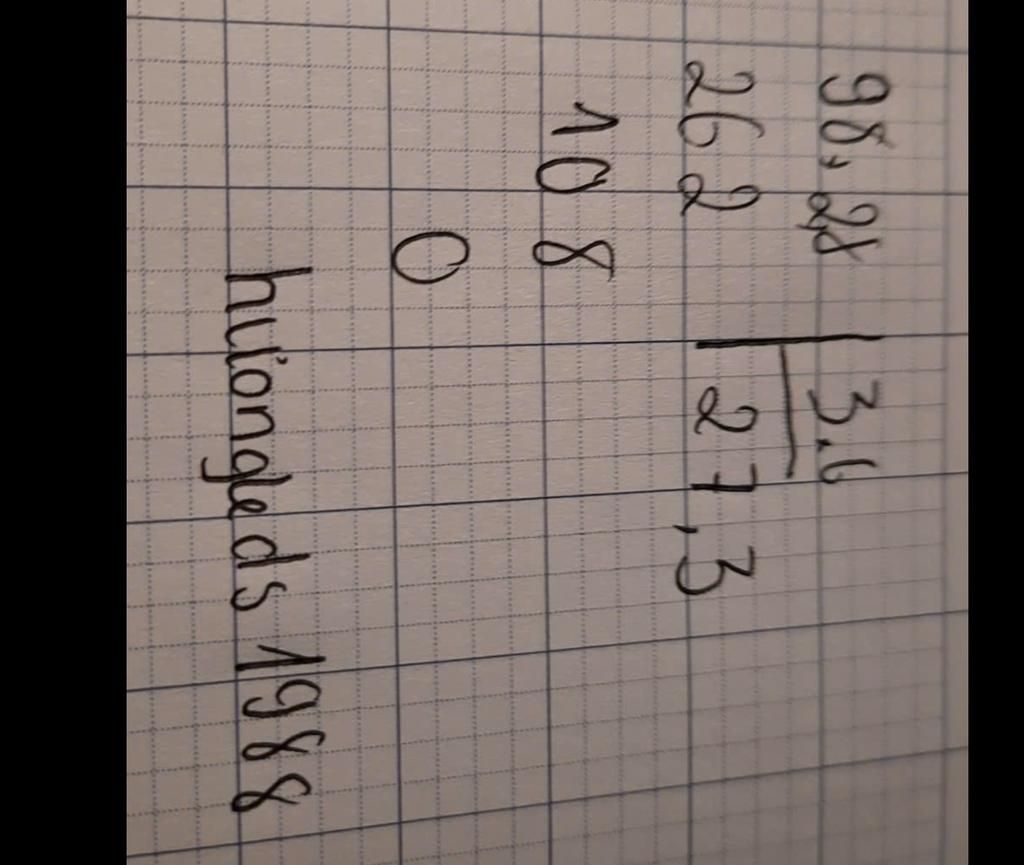 98,28 | 3.6
262 27,3
108
0
huiongleds 1988